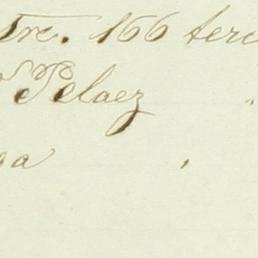 Tre. 166 terc
Pelaez
ga